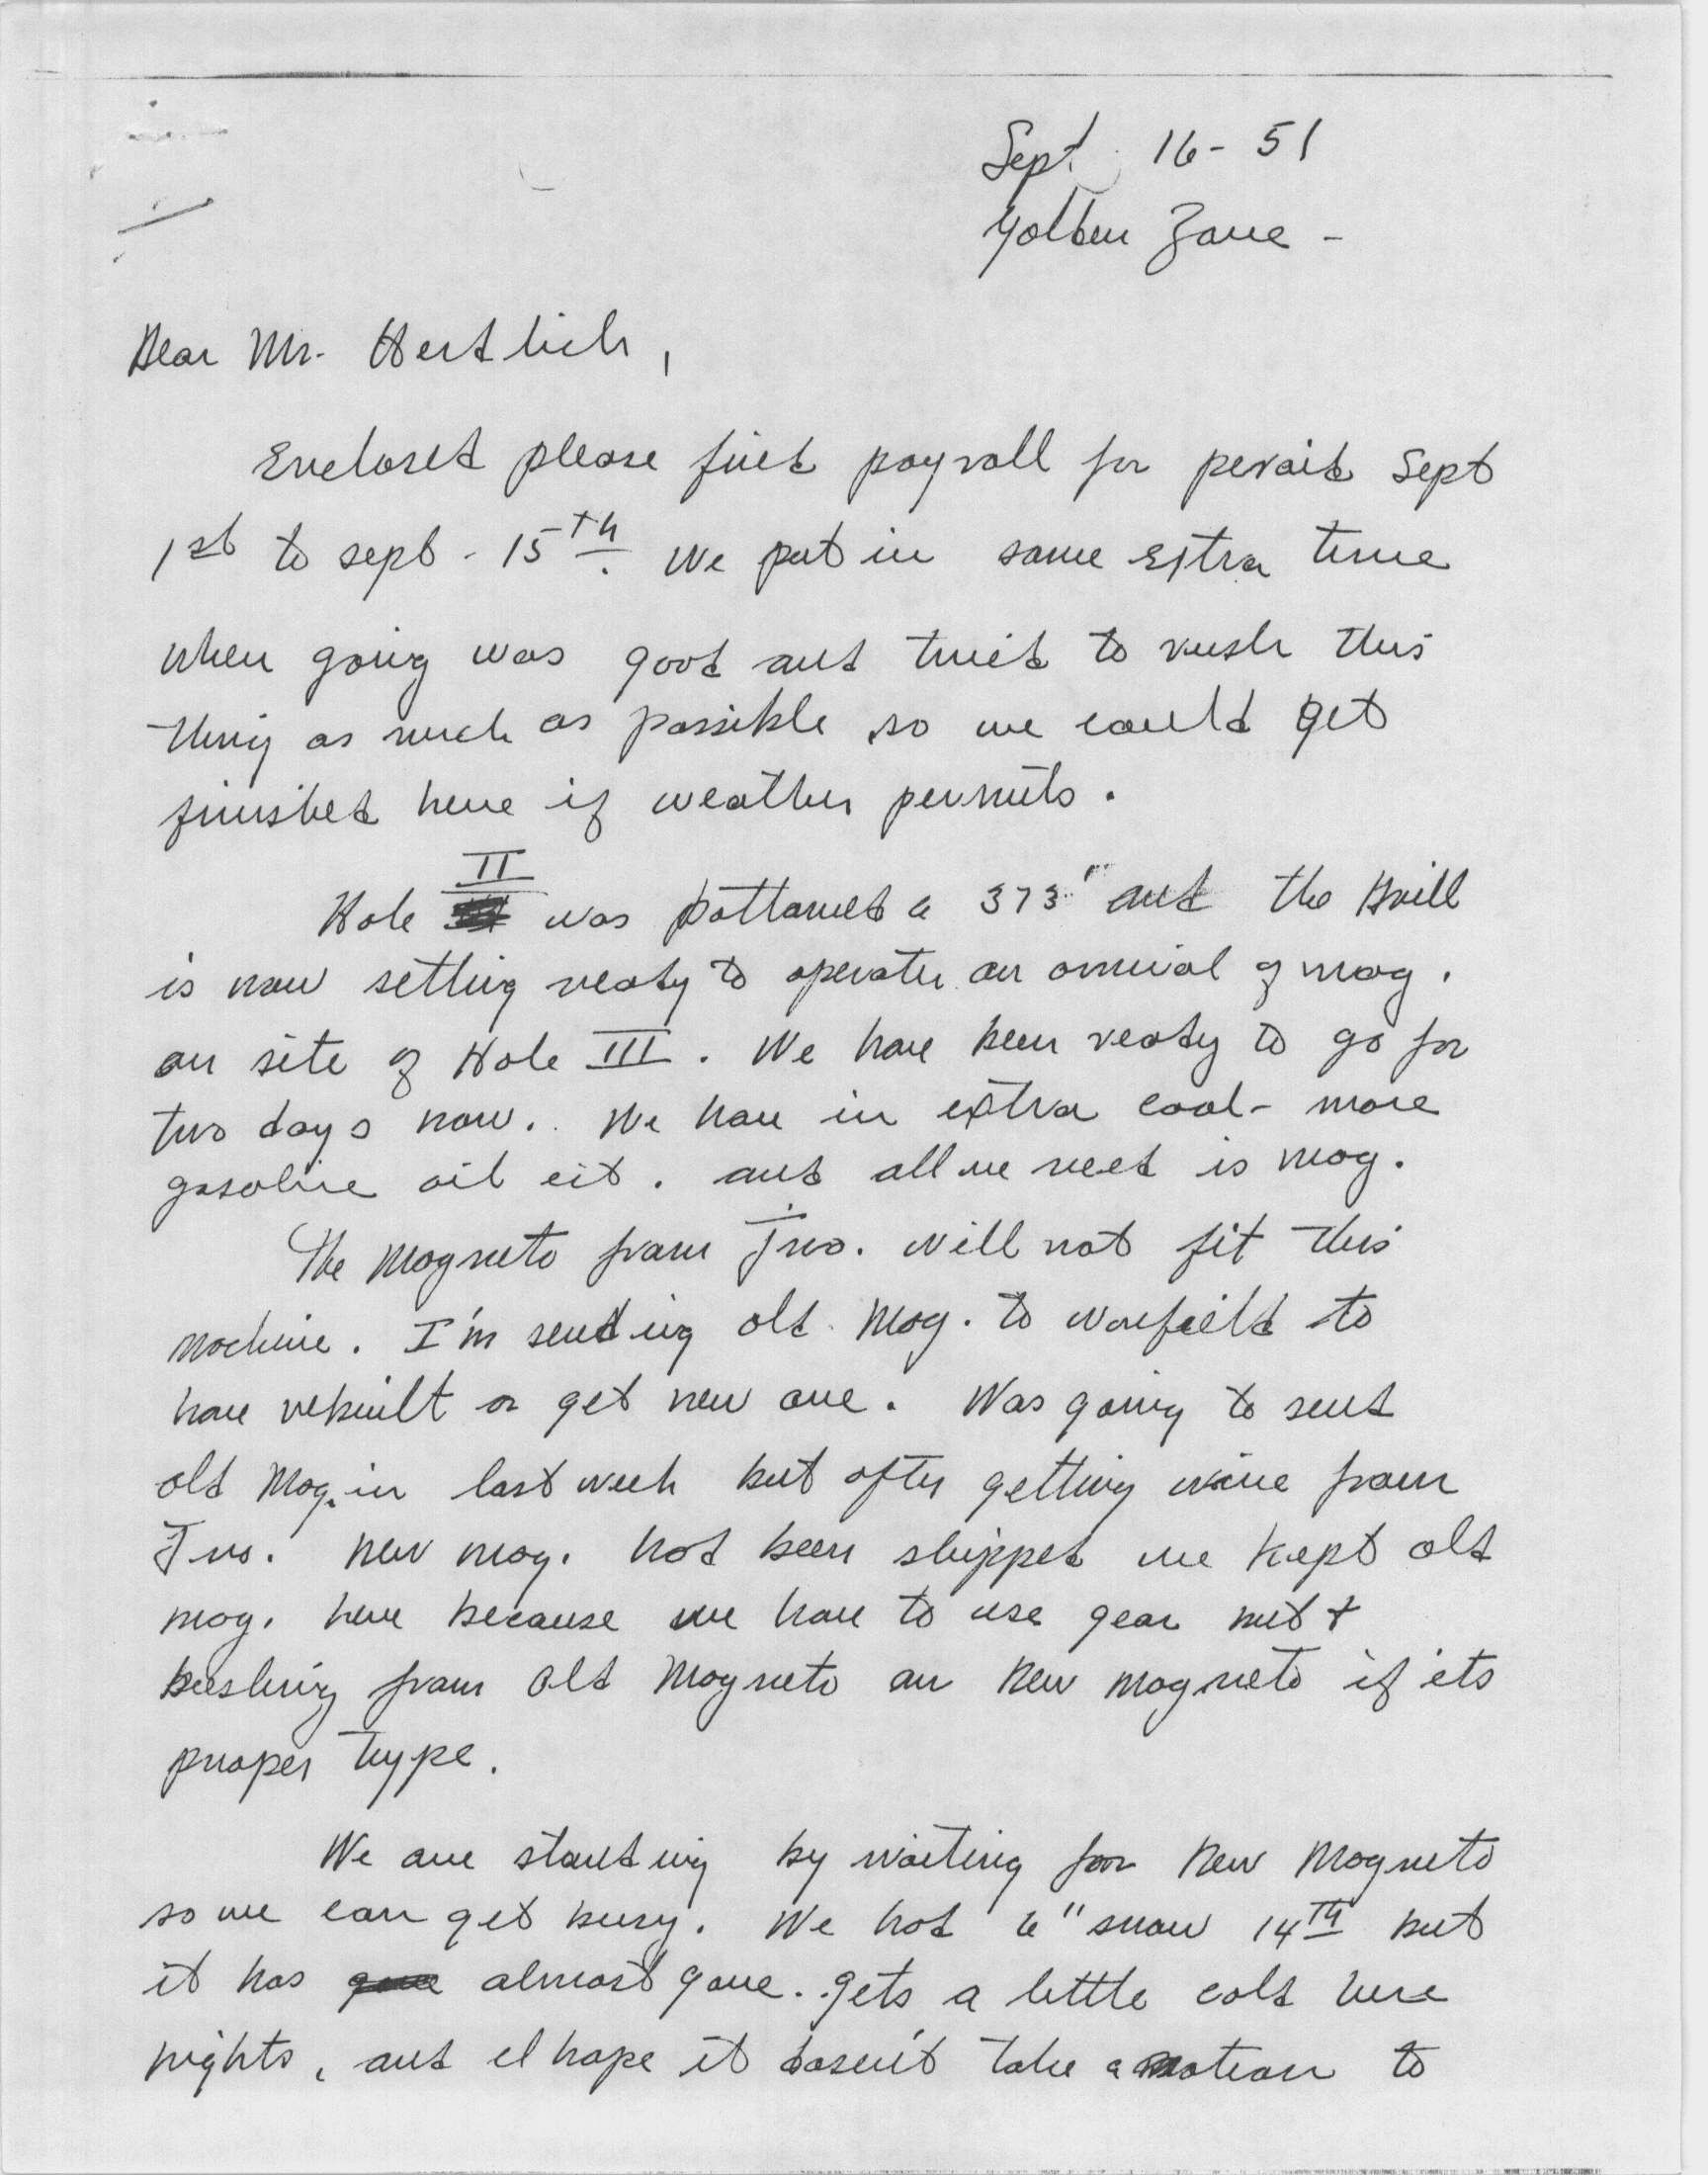 Sept. 16 - 51
Golden Zone -
Dear Mr. Hertlich,
Enclosed please find payroll for peroid Sept
1st to sept - 15th. We put in some extra time
when going was good and tried to rush this
thing as much as possible so we could get
finished here if weather permits.
II
Hole was bottomed a 373' and the Drill
is now setting ready to operate on arrival of mag.
on site of Hole III. We have been ready to go for
two days now. We have in extra coal - more
gasoline oil ect. and all we need is mag.
The Magneto from Jno. will not fit this
machine. I'm sending old Mag. to Warfield to
have rebuilt or get new one. Was going to send
old Mag. in last week but after getting wire from
Jno. new mag. had been shipped we kept old
mag. here because we have to use gear nut +
bushing from old Magneto on New magneto if its
proper type.
We are standing by waiting for New Magneto
so we can get busy. We had 6" snow 14TH but
it has almost gone. Gets a little cold here
nights, and I hope it dosen't take a notion to